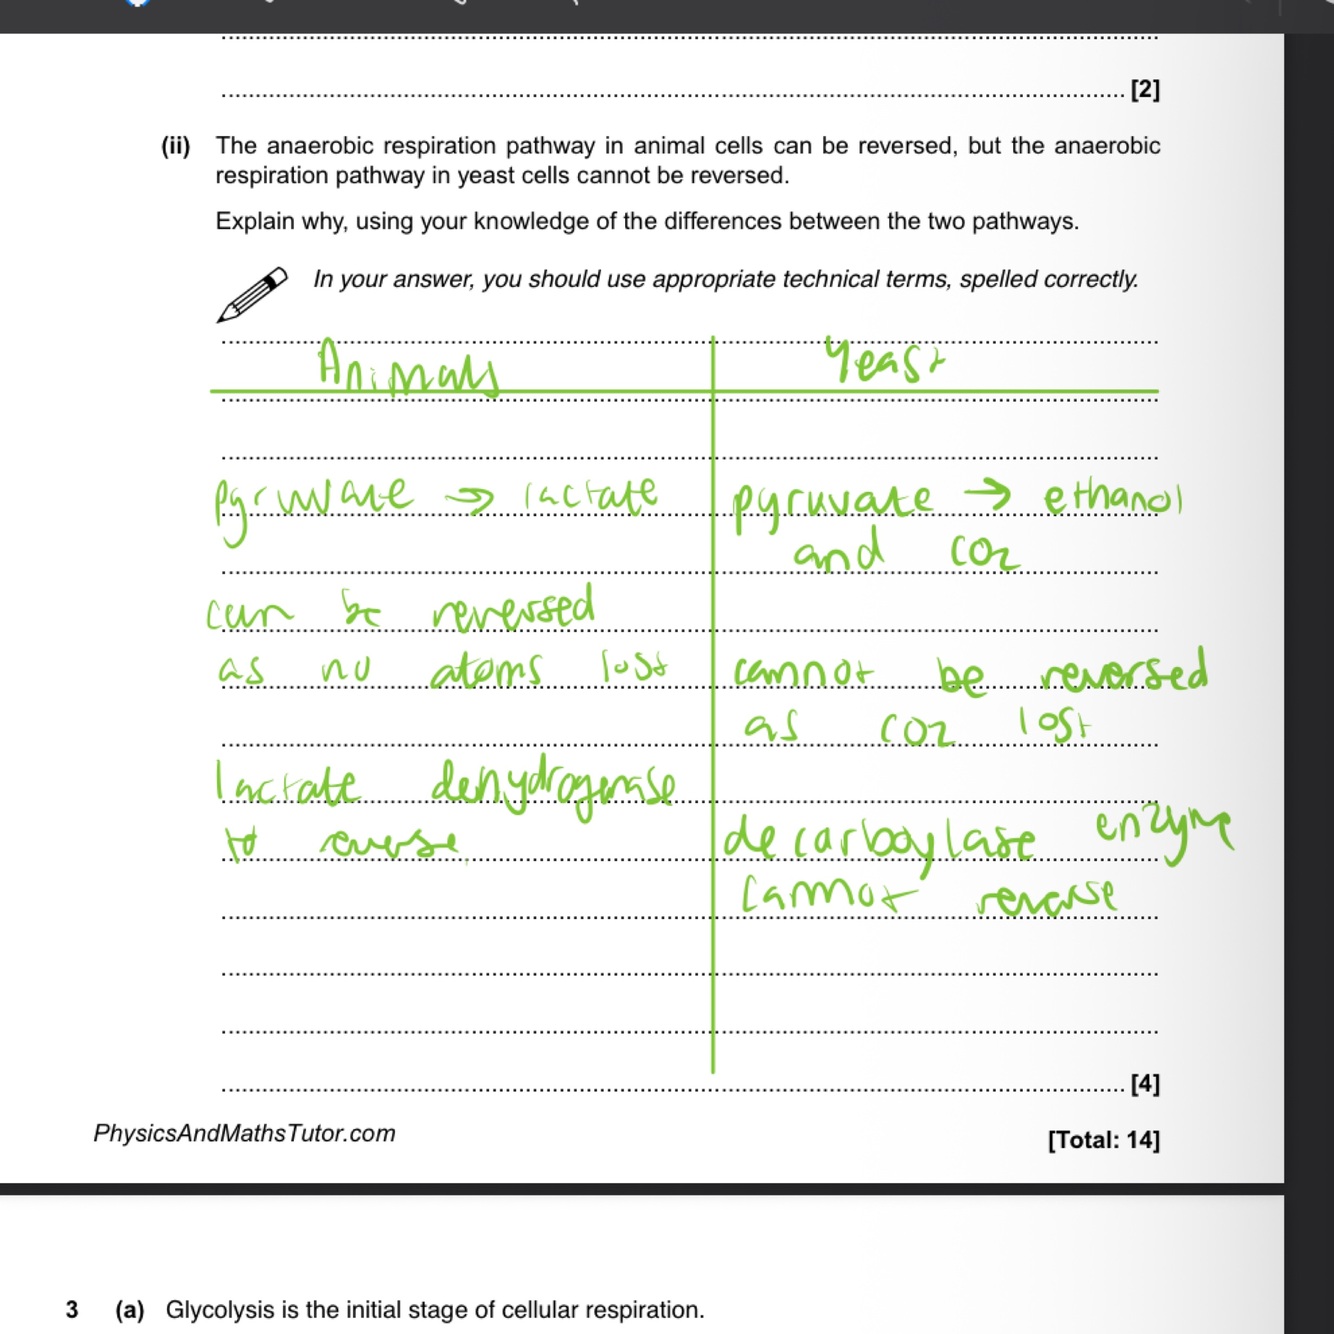 [2]
(ii) The anaerobic respiration pathway in animal cells can be reversed, but the anaerobic
respiration pathway in yeast cells cannot be reversed.
Explain why, using your knowledge of the differences between the two pathways.
In your answer, you should use appropriate technical terms, spelled correctly.
Animals
Yeast
pyruvate → lactate
can be reversed
as no atoms lost
lactate dehydrogenase
to reverse
pyruvate → ethanol
and CO2
cannot be reversed
as CO2 lost
decarboylase enzyme
cannot reverse
[4]
PhysicsAndMathsTutor.com
[Total: 14]
3 (a) Glycolysis is the initial stage of cellular respiration.